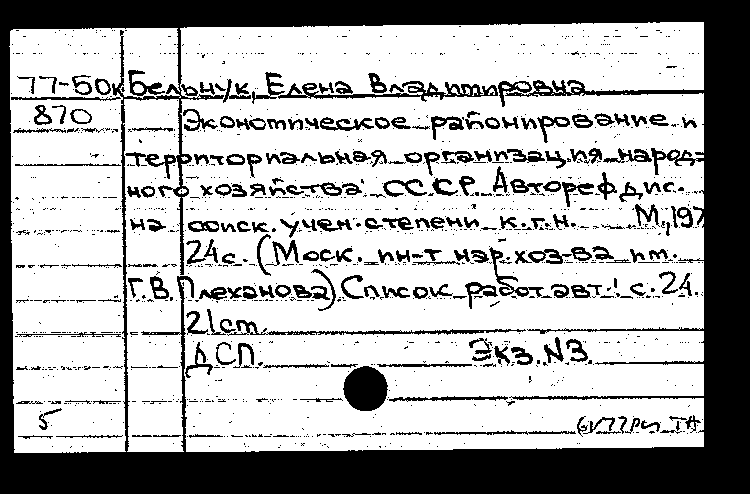 77-50к Бельчук, Елена Владимировна
870 Экономическое районирование и
территориальная организация народ-
ного хозяйства СССР. Автореф. дис.
на соиск. учен. степени к.г.н. М., 197
24 с. (Моск. ин-т нар. хоз-ва им.
Г.В. Плеханова) Список работ авт.: с. 24.
21 cm.
ДСП. Экз. N3
5